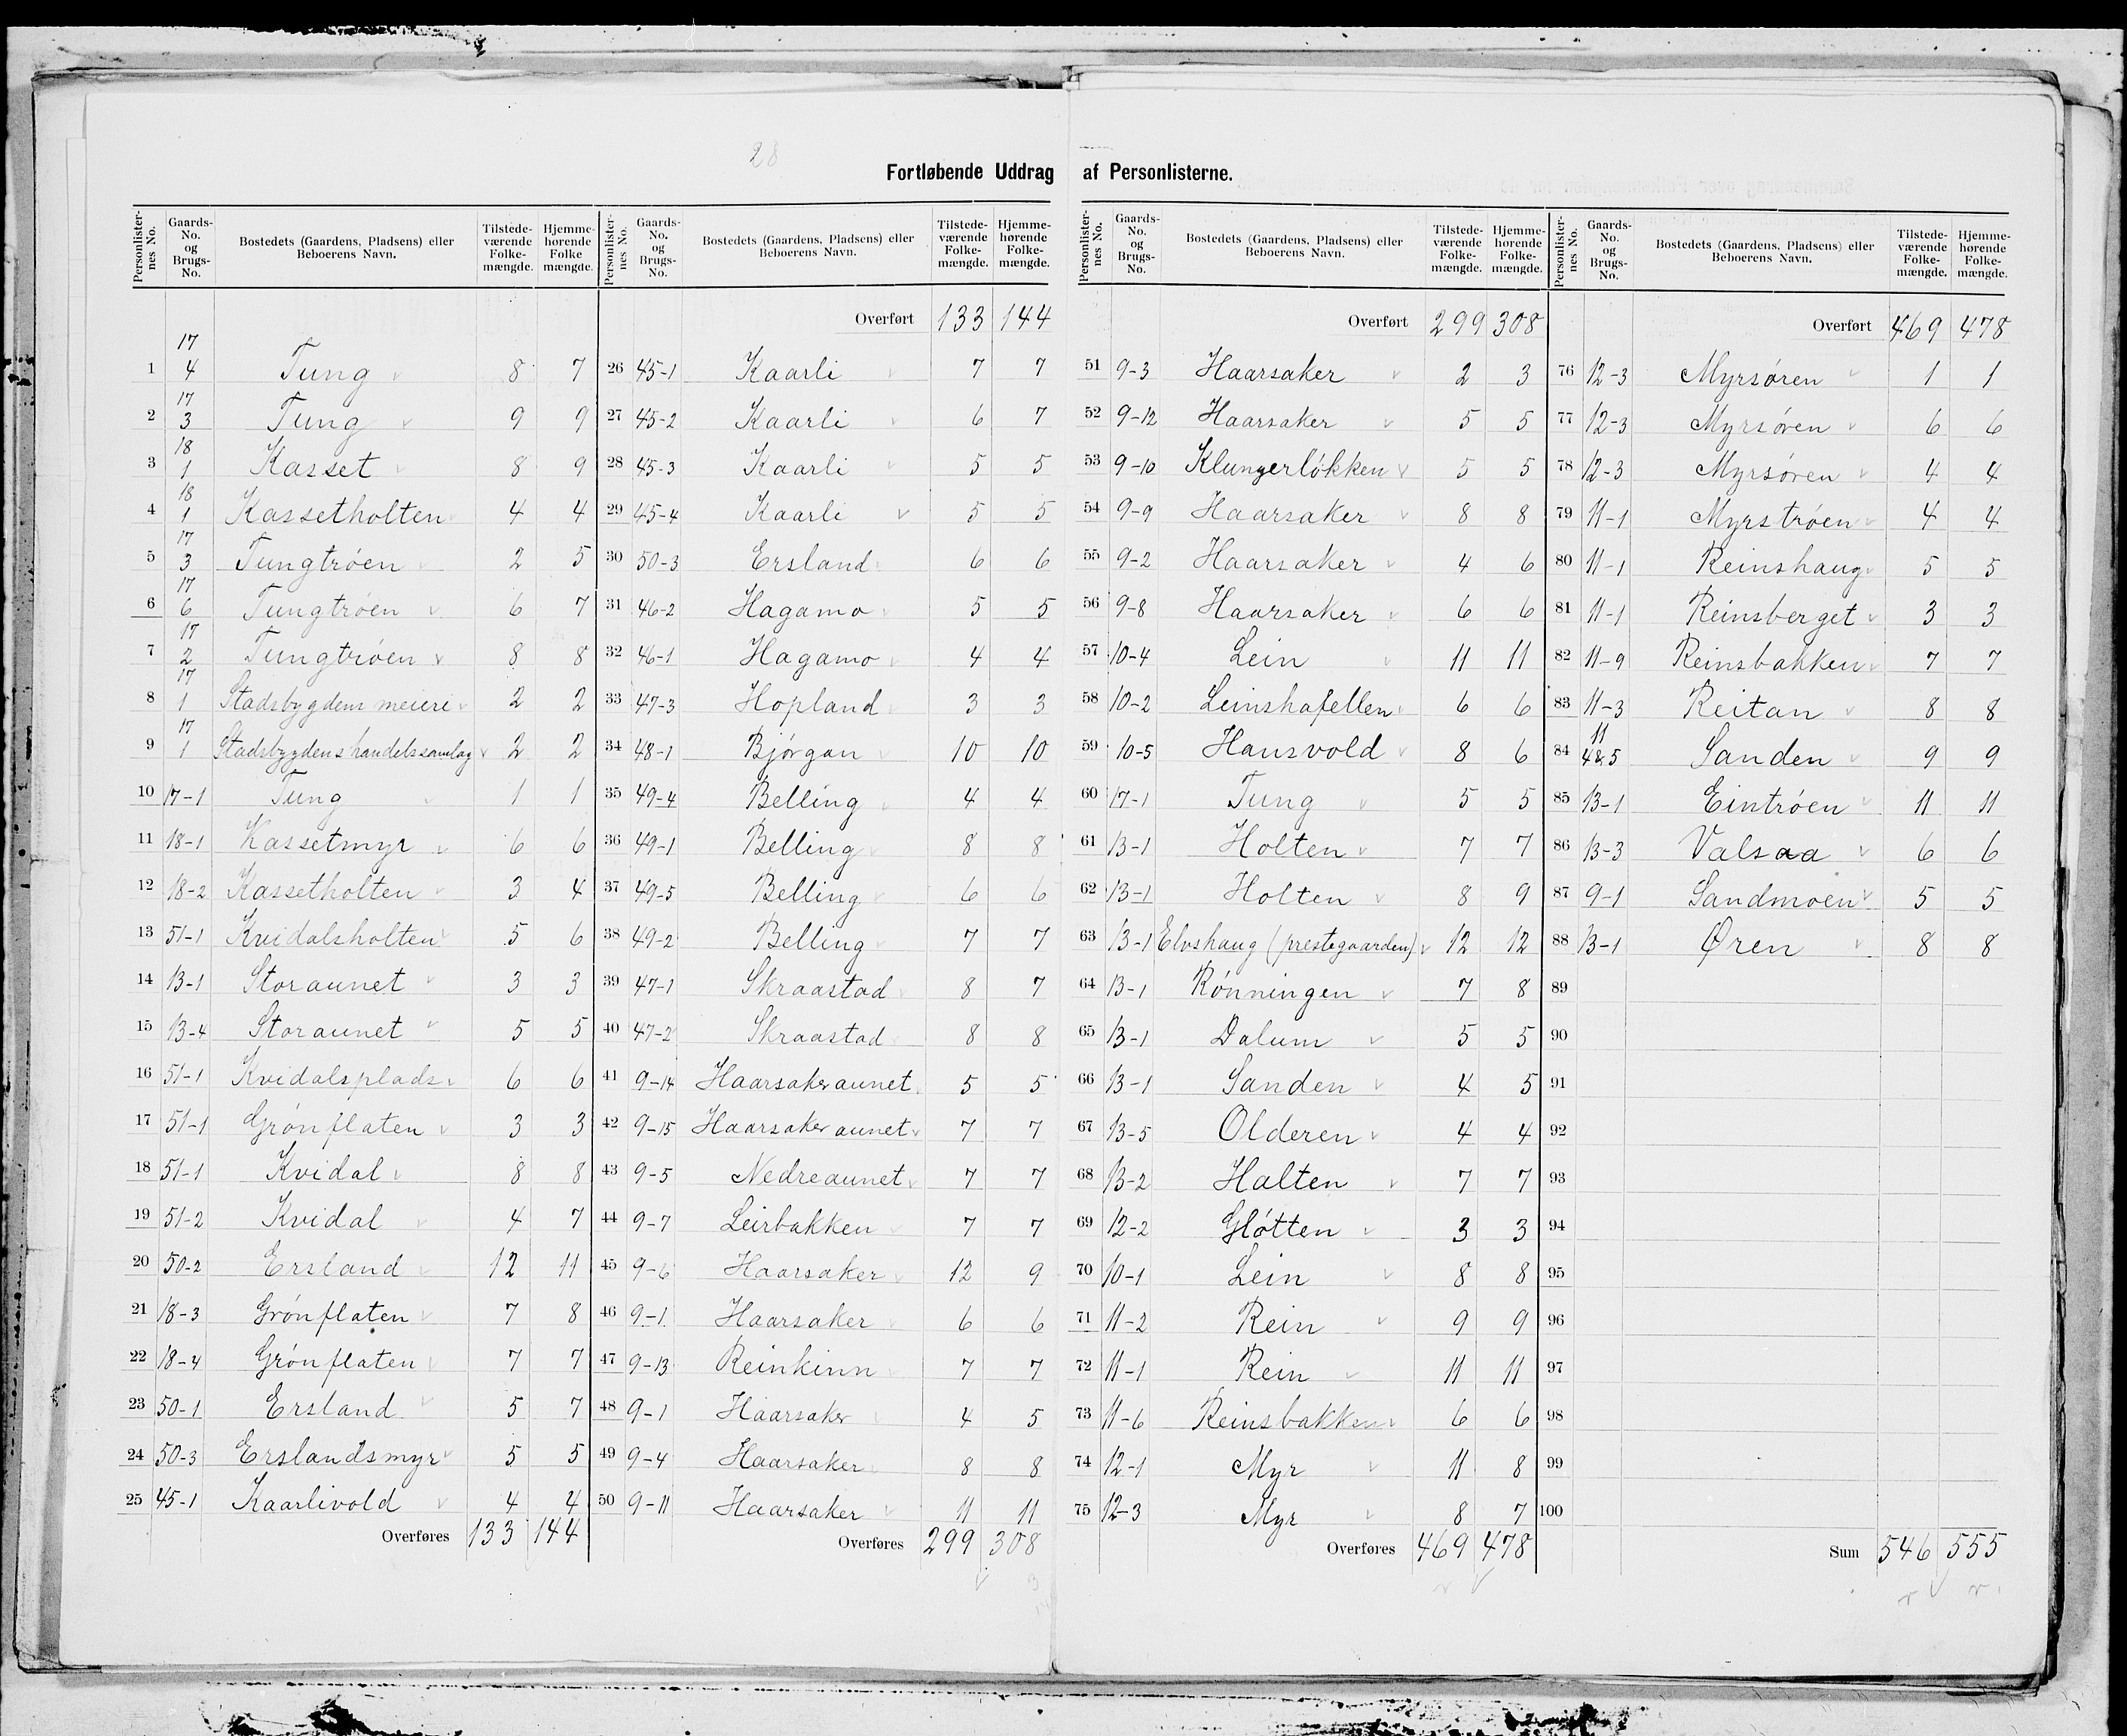 28
Fortløbende Uddrag af Personlisterne.
Personlister-nes No. | Gaards-No. og Brugs-No. | Bostedets (Gaardens, Pladsens) eller Beboerens Navn. | Tilstede-værende Folke-mængde. | Hjemme-hørende Folke mængde.
1 17 4 Tung 8 7
2 17 3 Tung 9 9
3 18 1 Kasset 8 9
4 18 1 Kassetholten 4 4
5 17 3 Tungtrøen 2 5
6 17 6 Tungtrøen 6 7
7 17 2 Tungtrøen 8 8
8 17 1 Stadsbygdens meieri 2 2
9 17 1 Stadsbygdens handelssamlag 2 2
10 17-1 Tung 1 1
11 18-1 Kassetmyr 6 6
12 18-2 Kassetholten 3 4
13 51-1 Kvidalsholten 5 6
14 13-1 Storaunet 3 3
15 13-4 Storaunet 5 5
16 51-1 Kvidalsplads 6 6
17 51-1 Grønflaten 3 3
18 51-1 Kvidal 8 8
19 51-2 Kvidal 4 7
20 50-2 Ersland 12 11
21 18-3 Grønflaten 7 8
22 18-4 Grønflaten 7 7
23 50-1 Ersland 5 7
24 50-3 Erslandsmyr 5 5
25 45-1 Kaarlivold 4 4
Overføres 133 144
Personlister-nes No. | Gaards-No. og Brugs-No. | Bostedets (Gaardens, Pladsens) eller Beboerens Navn. | Tilstede-værende Folke-mængde. | Hjemme-hørende Folke-mængde.
Overført 133 144
26 45-1 Kaarli 7 7
27 45-2 Kaarli 6 7
28 45-3 Kaarli 5 5
29 45-4 Kaarli 5 5
30 50-3 Ersland 6 6
31 46-2 Hagamo 5 5
32 46-1 Hagamo 4 4
33 47-3 Hopland 3 3
34 48-1 Bjørgan 10 10
35 49-4 Belling 4 4
36 49-1 Belling 8 8
37 49-5 Belling 6 6
38 49-2 Belling 7 7
39 47-1 Skraastad 8 7
40 47-2 Skraastad 8 8
41 9-14 Haarsakeraunet 5 5
42 9-15 Haarsakeraunet 7 7
43 9-5 Nedreaunet 7 7
44 9-7 Leirbakken 7 7
45 9-6 Haarsaker 12 9
46 9-1 Haarsaker 6 6
47 9-13 Reinkinn 7 7
48 9-1 Haarsaker 4 5
49 9-4 Haarsaker 8 8
50 9-11 Haarsaker 11 11
Overføres 299 308
Personlister-nes No. | Gaards-No. og Brugs-No. | Bostedets (Gaardens, Pladsens) eller Beboerens Navn. | Tilstede-værende Folke-mængde. | Hjemme-hørende Folke-mængde.
Overført 299 308
51 9-3 Haarsaker 2 3
52 9-12 Haarsaker 5 5
53 9-10 Klungerløkken 5 5
54 9-9 Haarsaker 8 8
55 9-2 Haarsaker 4 6
56 9-8 Haarsaker 6 6
57 10-4 Lein 11 11
58 10-2 Leinshafellen 6 6
59 10-5 Hansvold 8 6
60 17-1 Tung 5 5
61 13-1 Holten 7 7
62 13-1 Holten 8 9
63 13-1 Elvshaug (prestegaarden) 12 12
64 13-1 Rønningen 7 8
65 13-1 Dalum 5 5
66 13-1 Sanden 4 5
67 13-5 Olderen 4 4
68 13-2 Halten 7 7
69 12-2 Gløtten 3 3
70 10-1 Lein 8 8
71 11-2 Rein 9 9
72 11-1 Rein 11 11
73 11-6 Reinsbakken 6 6
74 12-1 Myr 11 8
75 12-3 Myr 8 7
Overføres 469 478
Personlister-nes No. | Gaards-No. og Brugs-No. | Bostedets (Gaardens, Pladsens) eller Beboerens Navn. | Tilstede-værende Folke-mængde. | Hjemme-hørende Folke-mængde.
Overført 469 478
76 12-3 Myrsøren 1 1
77 12-3 Myrsøren 6 6
78 12-3 Myrsøren 4 4
79 11-1 Myrstrøen 4 4
80 11-1 Reinshaug 5 5
81 11-1 Reinsberget 3 3
82 11-9 Reinsbakken 7 7
83 11-3 Reitan 8 8
84 11 4&5 Sanden 9 9
85 13-1 Eintrøen 11 11
86 13-3 Valsaa 6 6
87 9-1 Sandmoen 5 5
88 13-1 Øren 8 8
89
90
91
92
93
94
95
96
97
98
99
100
Sum 546 555